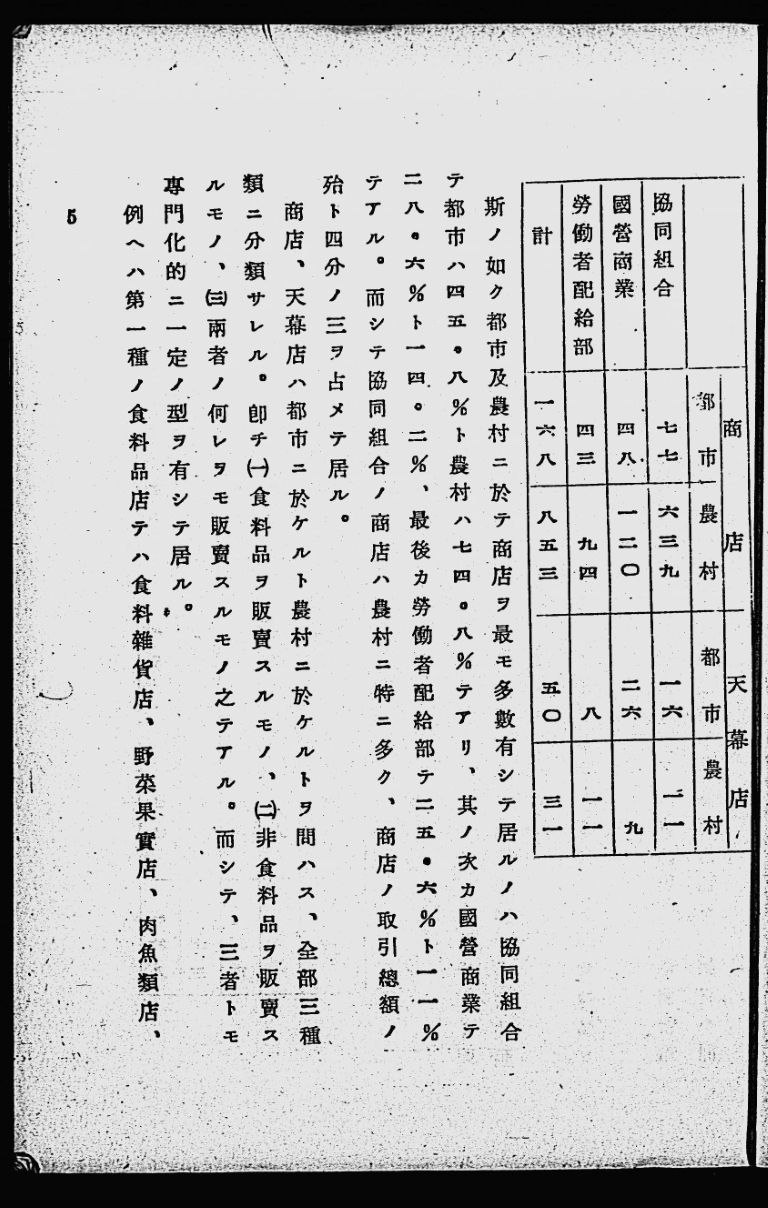 商店 天幕店
都市 農村 都市 農村
協同組合 七七 六三九 一六 一一
國營商業 四八 一二〇 二六 九
勞働者配給部 四三 九四 八 一一
計 一六八 八五三 五〇 三一
斯ノ如ク都市及農村ニ於テ商店ヲ最モ多數有シテ居ルノハ協同組合
テ都市ハ四五。八%ト農村ハ七四。八%テアリ、其ノ次カ國營商業テ
二八。六%ト一四。二%、最後カ勞働者配給部テ二五。六%ト一一%
テアル。而シテ協同組合ノ商店ハ農村ニ特ニ多ク、商店ノ取引總額ノ
殆ト四分ノ三ヲ占メテ居ル。
商店、天幕店ハ都市ニ於ケルト農村ニ於ケルトヲ問ハス、全部三種
類ニ分類サレル。卽チ㈠食料品ヲ販賣スルモノ、㈡非食料品ヲ販賣ス
ルモノ、㈢兩者ノ何レヲモ販賣スルモノ之テアル。而シテ、三者トモ
專門化的ニ一定ノ型ヲ有シテ居ル。
例ヘハ第一種ノ食料品店テハ食料雜貨店、野菜果實店、肉魚類店、
5